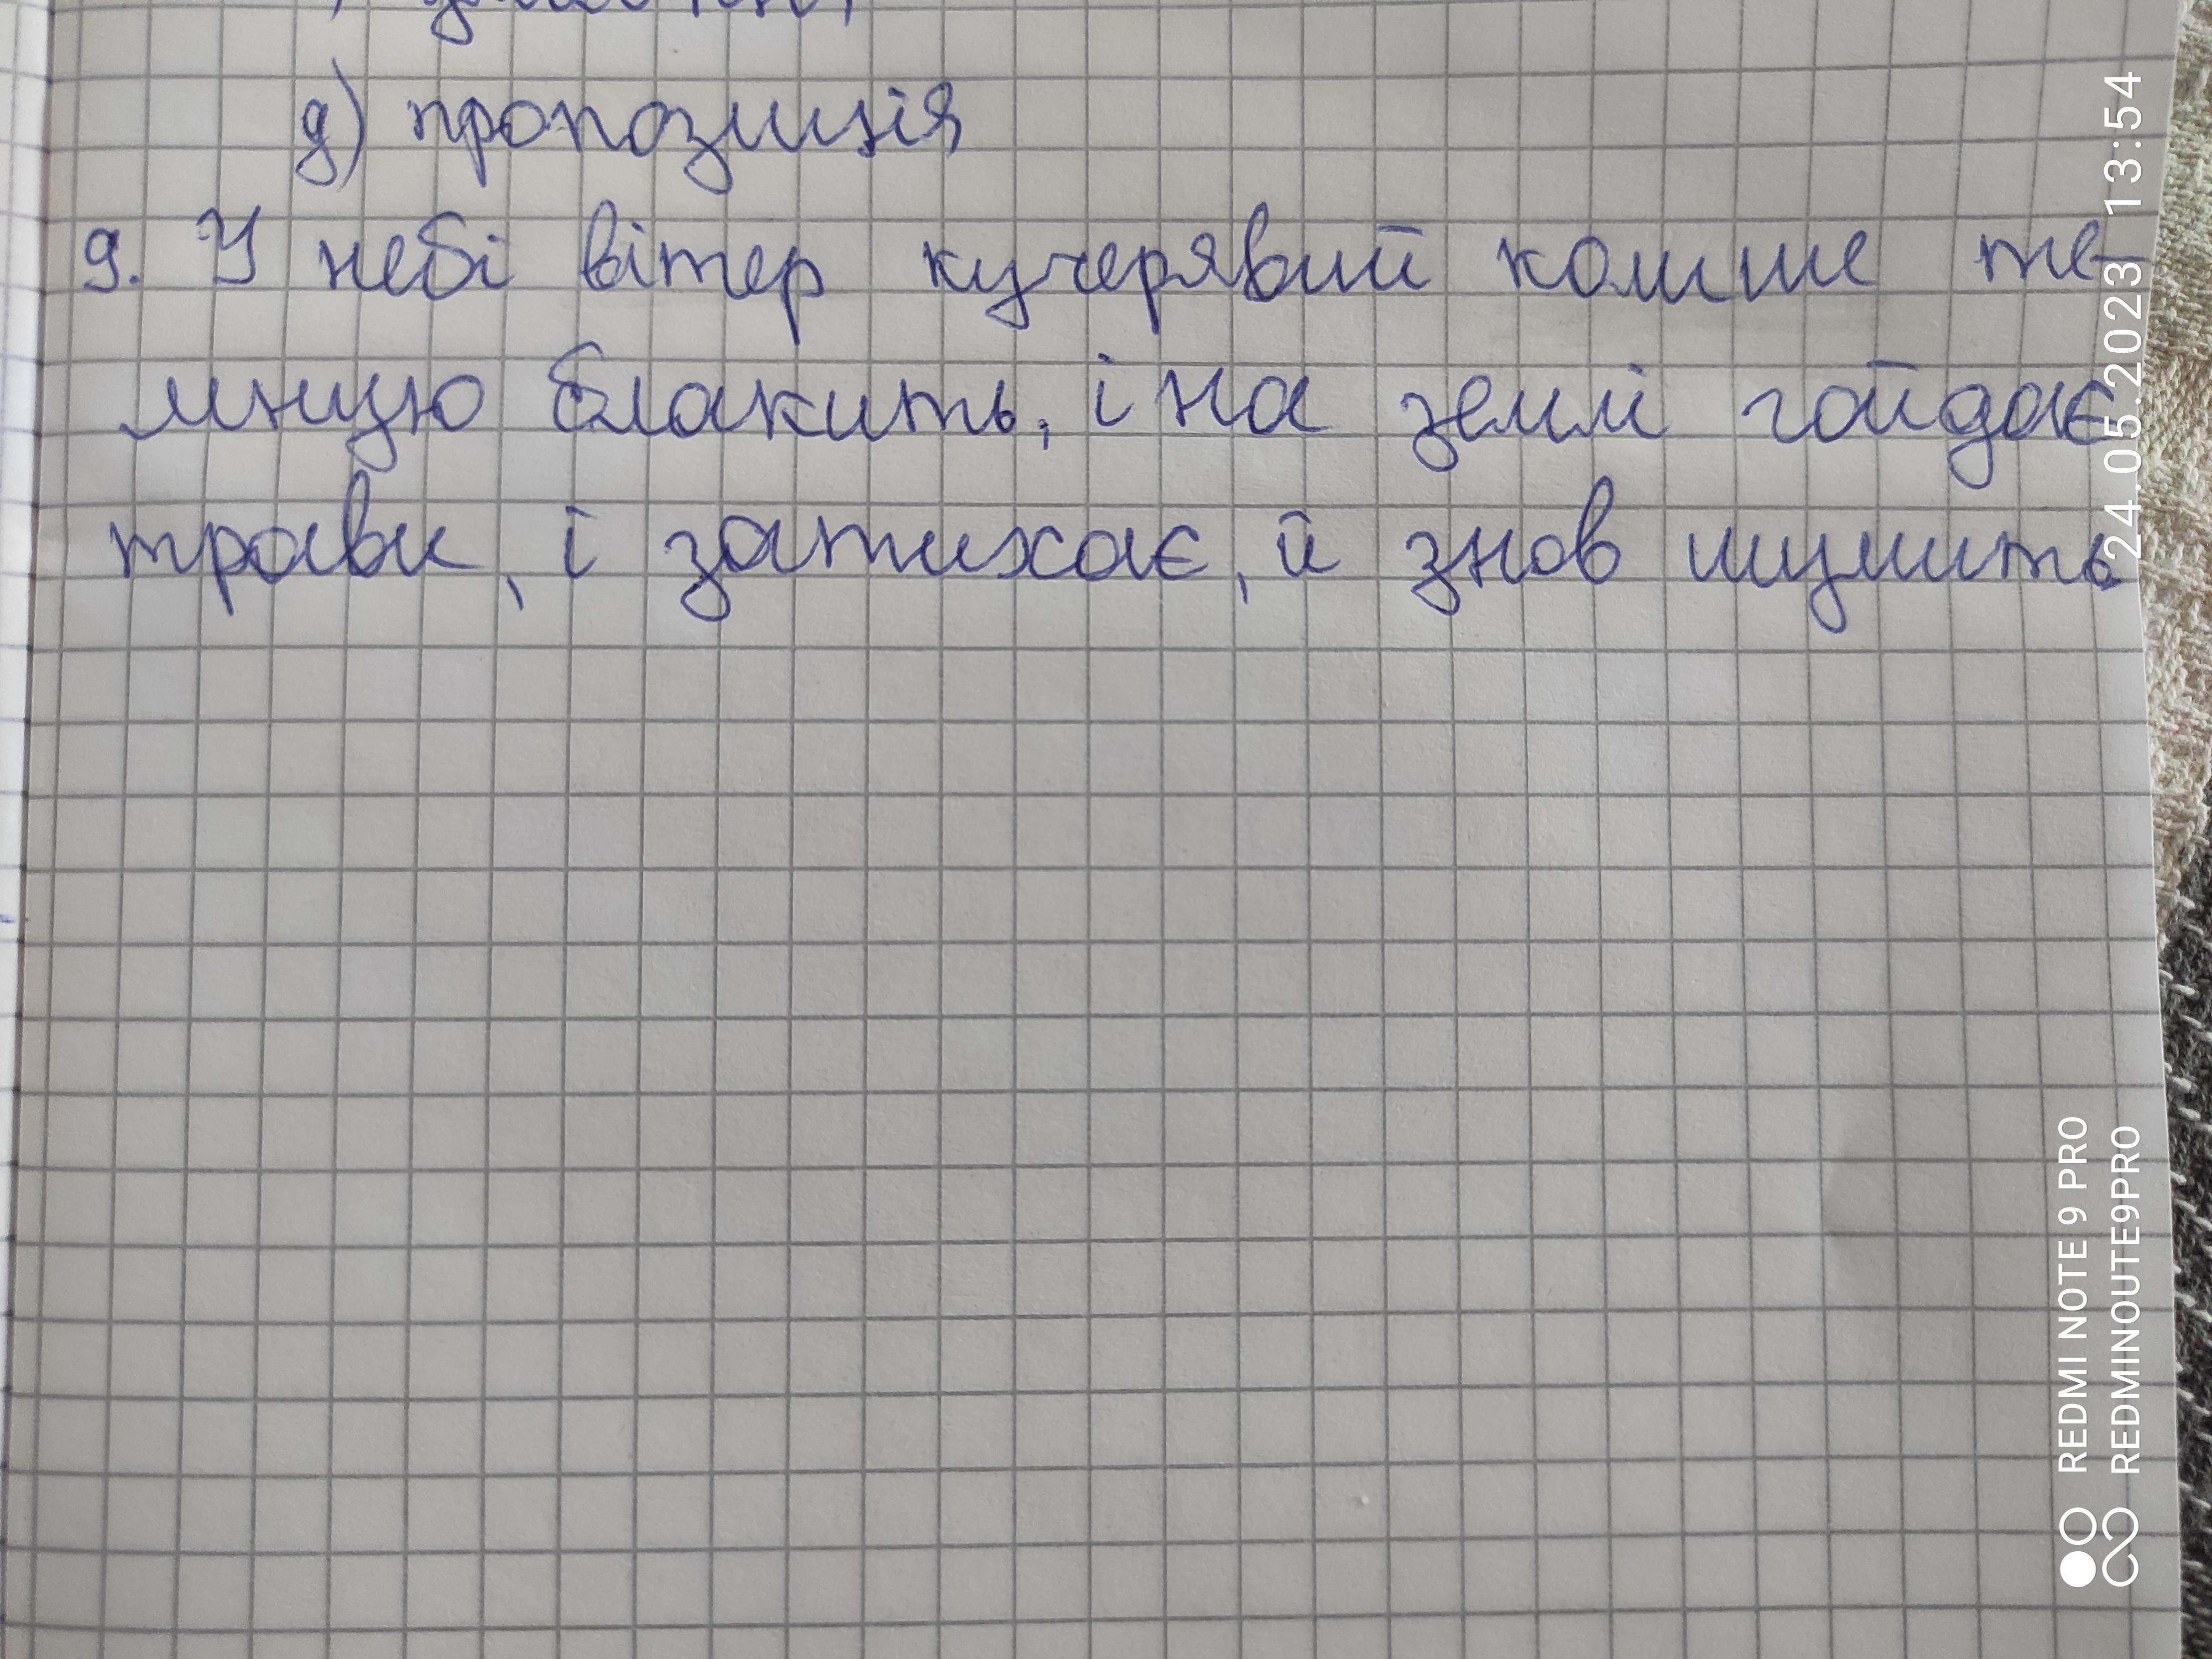 д) пропозиція
9. У небі вітер кучерявий колише те-
мную блакить, і на землі гойдає
трави, і затихає, й знов шумить
24.05.2023 13:54
REDMI NOTE 9 PRO
REDMINOUTE9PRO